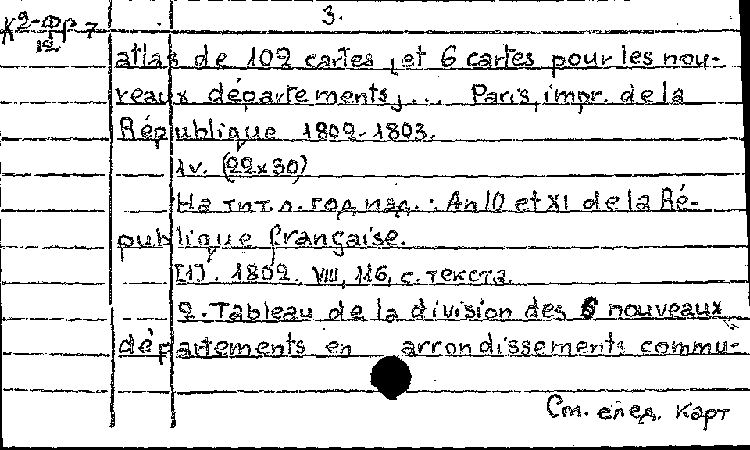 3.
К 2-Фр 7
12
atlas de 102 cartes, et 6 cartes pour les nou-
veaux départements,... Paris, impr. de la
République 1802-1803.
1v. (22x30)
На тит. л. год изд.: An 10 et XI de la Ré-
publique française.
[1]. 1802. VIII, 116, с. текста.
2. Tableau de la division des 6 nouveaux
départements en arrondissements commu-
См. след. карт